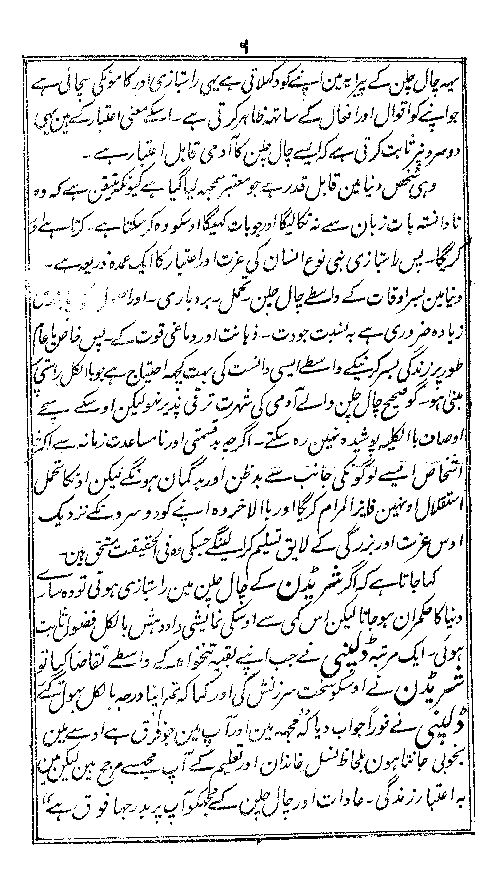 ۹
یہہ چال چلن کے پیرایہ مین اپنے کو دکھلاتی ہے یہی راستبازی اور کامونکی سچائی ہے
جو اپنے کو اقوال اور افعال کے ساتھہ ظاہر کرتی ہے ۔ اسکے معنی اعتبار کے ہین یہی
دوسرونپر ثابت کرتی ہے کہ ایسے چال چلن کا آدمی قابل اعتبار ہے ۔
وہی شخص دنیا مین قابل قدر ہے جو معتبر سمجہہ لیا گیا ہے کیونکہ یقین ہے کہ وہ
نادانستہ بات زبان سے نہ نکالیگا اور جو بات کہیگا اوسکو وہ کرسکتا ہے ۔ کرتا ہے اور
کریگا ۔ پس راستبازی بنی نوع انسان کی عزت اور اعتبار کا ایک عمدہ ذریعہ ہے ۔
دنیا مین بسر اوقات کے واسطے چال چلن ۔ تحمل ۔ بردباری ۔ اور اصول کی
زیادہ ضروری ہے بہ نسبت جودت ۔ ذہانت اور دماغی قوت کے ۔ پس خاص یا عام
طور پر زندگی بسر کرنیکے واسطے ایسی دانست کی بہت کچہہ احتیاج ہے جو بالکل راستی پر
مبنی ہو ۔ گو صحیح چال چلن والے آدمی کی شہرت ترقی پذیر نہو لیکن اوسکے سچے
اوصاف بالکلیہ پوشیدہ نہین رہ سکتے ۔ اگرچہ بدقسمتی اور نامساعدت زمانہ سے اکثر
اشخاص ایسے لوگونکی جانب سے بدظن اور بدگمان ہونگے لیکن انکا تحمل
استقلال اونہین فایز المرام کریگا اور بالآخر وہ اپنے کو دوسرونکے نزدیک
اوس عزت اور بزرگی کے لایق تسلیم کرا لینگے جسکی وہ فی الحقیقت مستحق ہین ۔
کہا جاتا ہے کہ اگر شریڈن کے چال چلن مین راستبازی ہوتی تو وہ سارے
دنیا کا حکمران ہو جاتا لیکن اس کمی سے اوسکی نمایشی داد و دہش بالکل فضول ثابت
ہوئی ۔ ایک مرتبہ ڈلپنی نے جب اپنے بقیہ تنخواہ کے واسطے تقاضا کیا تو
شریڈن نے اوسکو سخت سرزنش کی اور کہا کہ تم اپنا درجہ بالکل بہول گئے
ڈلپنی نے فوراً جواب دیا کہ "مجہہ مین اور آپ مین جو فرق ہے اوسے مین
بخوبی جانتا ہون بلحاظ نسل خاندان اور تعلیم کے آپ مجھسے مرجح ہین لیکن مین
بہ اعتبار زندگی ۔ عادات اور چال چلن کے مجہکو آپ پر بدرجہا فوق ہے"